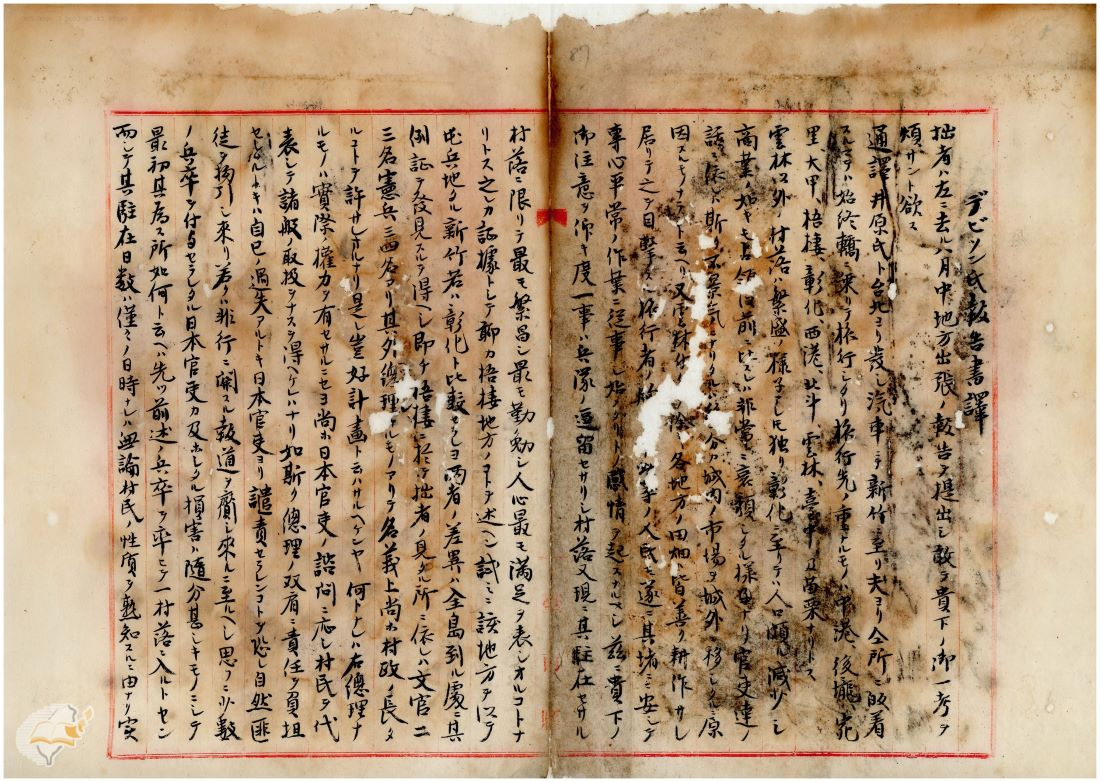 デビソン氏報告書譯
拙者ハ左ニ去ル八月中地方出張ノ報告ヲ提出シ敢テ貴下ノ御一考ヲ
煩サント欲ス
通譯井原氏ト台北ヨリ發シ汽車ニテ新竹ニ至リ夫ヨリ会所ニ皈着
スルマテハ始終轎ニ乗リテ旅行シタリ旅行先ノ重ナルモノハ中港、後壠、苑
里大甲、梧棲、彰化西港、北斗、雲林、臺中及苗栗ナリトス
雲林以外ノ村落ハ繁盛ノ様子ナレ圧独リ彰化ニ至リテハ人口頗ル減少シ
商業ノ如キモ占領後前ニ比スレハ非常ニ衰頽シタル様子ナリ官吏達ノ
話ニ依レハ斯ク不景気ナリタルハ分城内ノ市場ヲ城外ニ移シタル原
因スルモノナラスト云ヘリ又雲林ヲ除ク各地方ノ田畑ハ皆善ク耕作サレ
居リテ之ヲ目撃スル旅行者ハ人民モ遂ニ其堵ニ安シテ
事心平常ノ作業ニ從事シ始メタリトノ感情ヲ起スナルヘシ茲ニ貴下ノ
御注意ヲ仰キ度一事ハ兵隊ノ逗留セサリシ村落又現ニ其駐在セサル
村落ニ限リテ最モ繁昌シ最モ勤勉シ人心最モ満足ヲ表シオルコトナ
リトス之レカ証據トシテ聊カ梧棲地方ノヿヲ述ヘン試ミニ該地方ヲ以テ
屯兵地タル新竹若ハ彰化ト比較セラレヨ両者ノ差異ハ全島到ル處ニ其
例証ヲ發見スルヲ得ヘシ即チ梧棲ニ於テ拙者ノ見タル所ニ依レハ文官二
三名憲兵三四名アリ其外總理ナルモノアリテ名義上尚ホ村政ノ長タ
ルコトヲ許サレオルナリ是レ豈好計画ト云ハサルヘケンヤ何トナレハ右總理ナ
ルモノハ實際ノ權力ヲ有セサルニセヨ尚ホ日本官吏ノ諮問ニ応シ村民ヲ代
表シテ諸般ノ取扱ヲナスヲ得ヘケレハナリ如斯ク總理ノ双肩ニ責任ヲ負担
セシムルトキハ自己ノ過失アルトキ日本官吏ヨリ譴責セラレンコトヲ恐レ自然匪
徒ヲ拘引シ来リ若ハ非行ニ関スル報道ヲ齎シ来ルニ至ルヘシ思フニ少数
ノ兵卒ヲ付与セラレタル日本官吏カ及ホシタル損害ハ隨分甚シキモノニシテ
最初其為ス所如何ト云ヘハ先ツ前述ノ兵卒ヲ率ヒテ一村落ニ入ルトセン
而シテ其駐在日数ハ僅々ノ日時シハ無論村民ノ性質ヲ熟知スルニ由ナリ実